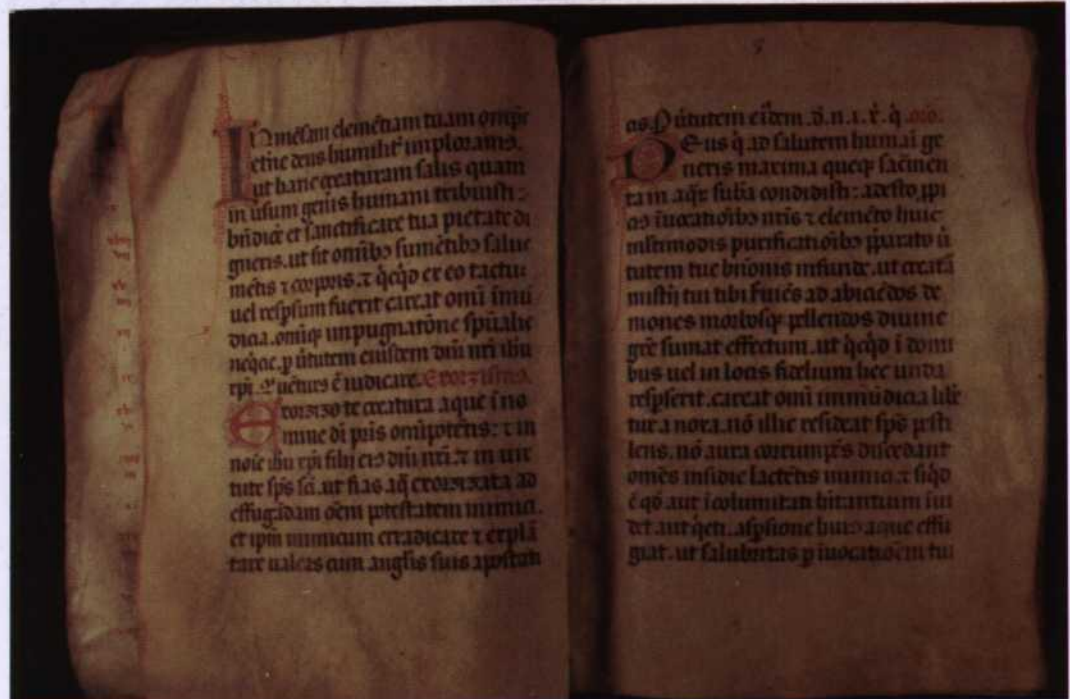 Inmēsam clemētiam tuam omīps
etīne deus humilit̄ implorams.
ut hanc creaturam salis quam
in usum gen̄is humani tribuisti:
bn̄dicē et sanctificare tua pietate di
gneris. ut sit omībꝫ sumētibꝫ salus
mētis ⁊ corporis. ⁊ qͥcqͥd ex eo tactū
uel respsum fuerit careat omī īmū
dicia. omīqꝫ inpugnatōne spūalis
neqͥcie. ꝑ ūtutem eiusdem dn̄i nr̄i ihū
xp̄i. qͥ uēturs ē iudicare. Exorzismꝰ.
Exorzizo te creatura aque ī no
mine dī pr̄is omīpotētis: ⁊ in
noīe ihū xp̄i filii eiꝰ dn̄i nr̄i. ⁊ in uir
tute sp̄s scī. ut fias aqͣ exorzizata ad
effugādam om̄em potestatem inimici.
et ip̄m inimicum eradicare ⁊ explā
tare ualeas cum angl̄is suis apostati
cis. P ūtutem eīdem. d̄. n. i. x̄. q̄. or̄o.
Deus qͥ ad salutem humāi ge
neris maxima queqꝫ sac̄men
ta in aqͣr̄ sub̄a condidisti: adesto ꝓpi
cꝰ īuocatiōibꝫ nr̄is ⁊ elemēto huic
ml̄timodis purificatiōibꝫ p̄parato ū
tutem tue bn̄onis infunde. ut creatā
mistīi tui tibi s̄uiēs ad abiciēdos de
mones morbosqꝫ pellendos diuine
gr̄e sumat effectum. ut qͥcqͥd ī domi
bus uel in locis fidelium hec unda
respserit. careat omī inmūdicia libe
tur a noxa. nō illic resideat sp̄s pesti
lens. nō aura corrumpēs discedant
omēs insidie latētis inimici. ⁊ siqͥd
ē qͦd. aut īcolumitati hītantium īui
det. aut qͥeti. aspsione huiꝰ aque effu
giat. ut salubritas ꝑ īuocatiōem tui